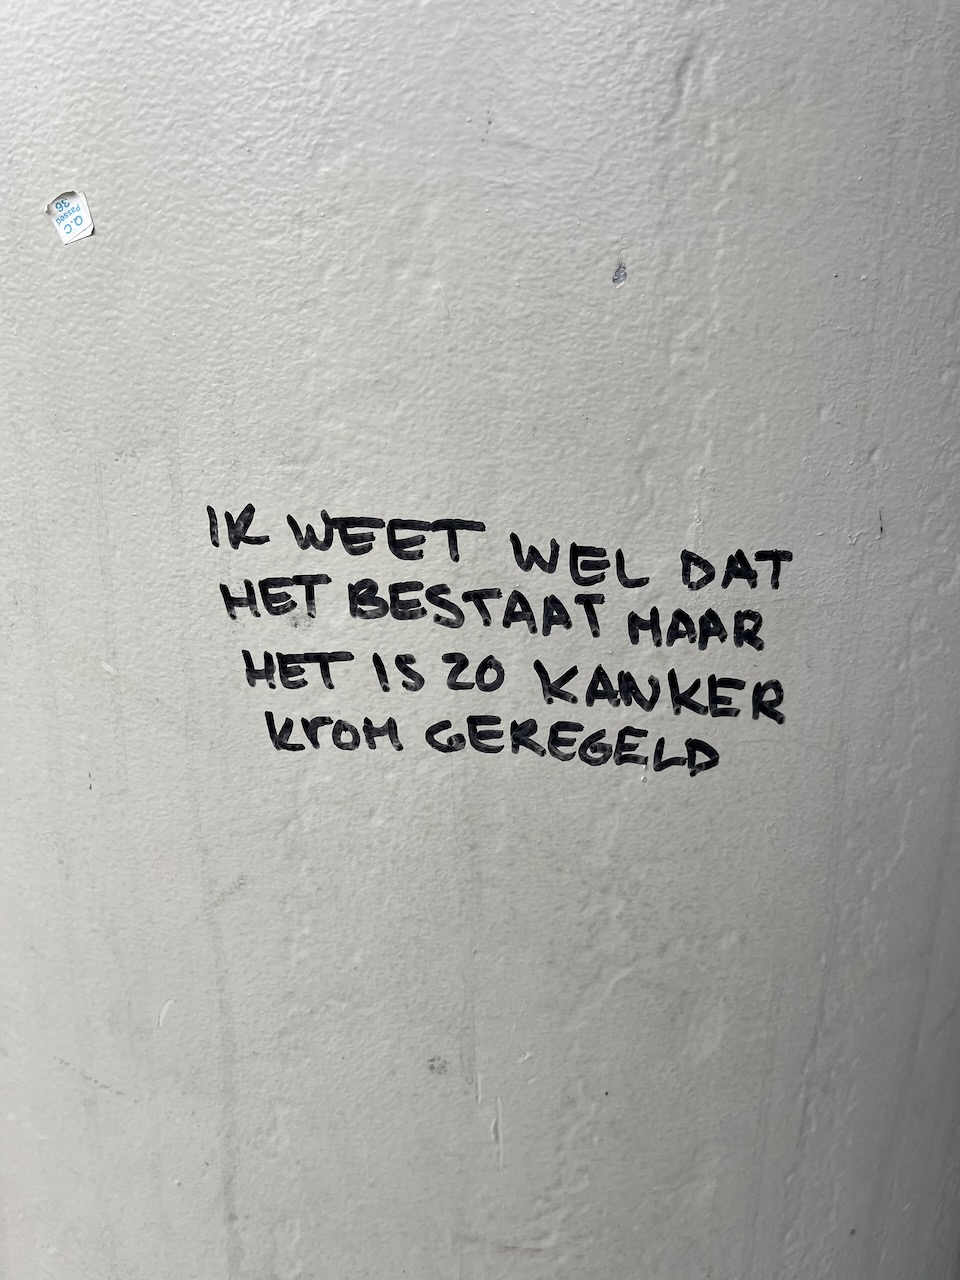 Q.C
Passed
36
IK WEET WEL DAT
HET BESTAAT MAAR
HET IS ZO KANKER
KrOM GEREGELD